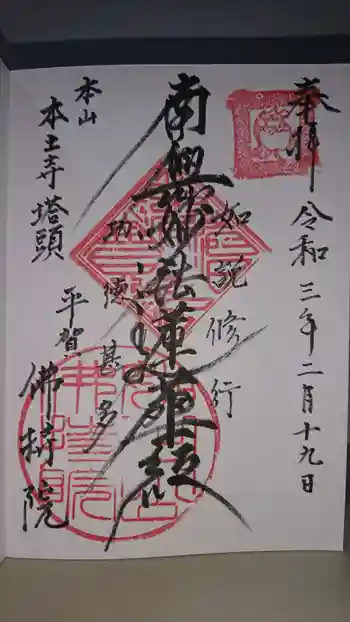 奉拝 令和三年二月十九日
如説修行
南無妙法蓮華経
功徳甚多
本山
本土寺塔頭
平賀
佛持院